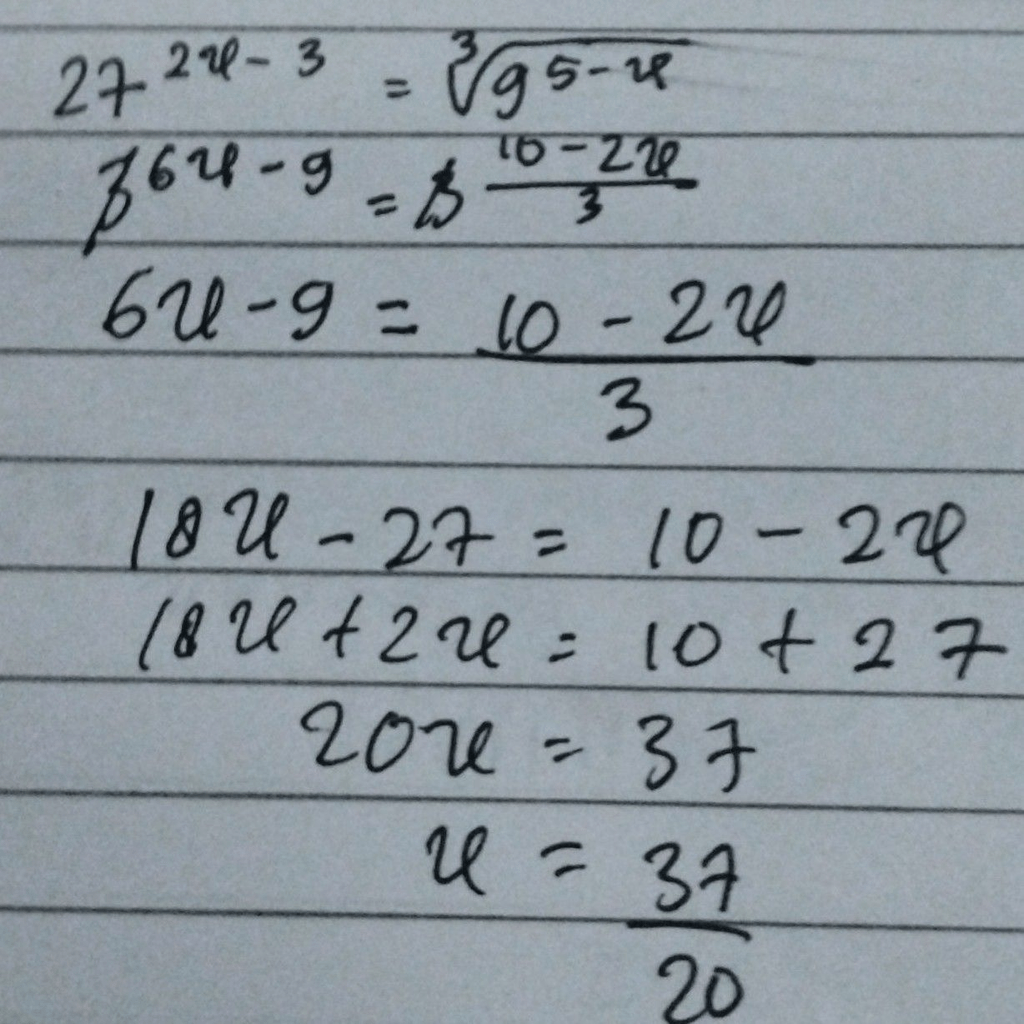 27^(2x-3) = ∛(9^(5-x))
3^(6x-9) = 3^((10-2x)/3)
6x-9 = (10-2x)/3
18x-27 = 10-2x
18x+2x = 10+27
20x = 37
x = 37/20